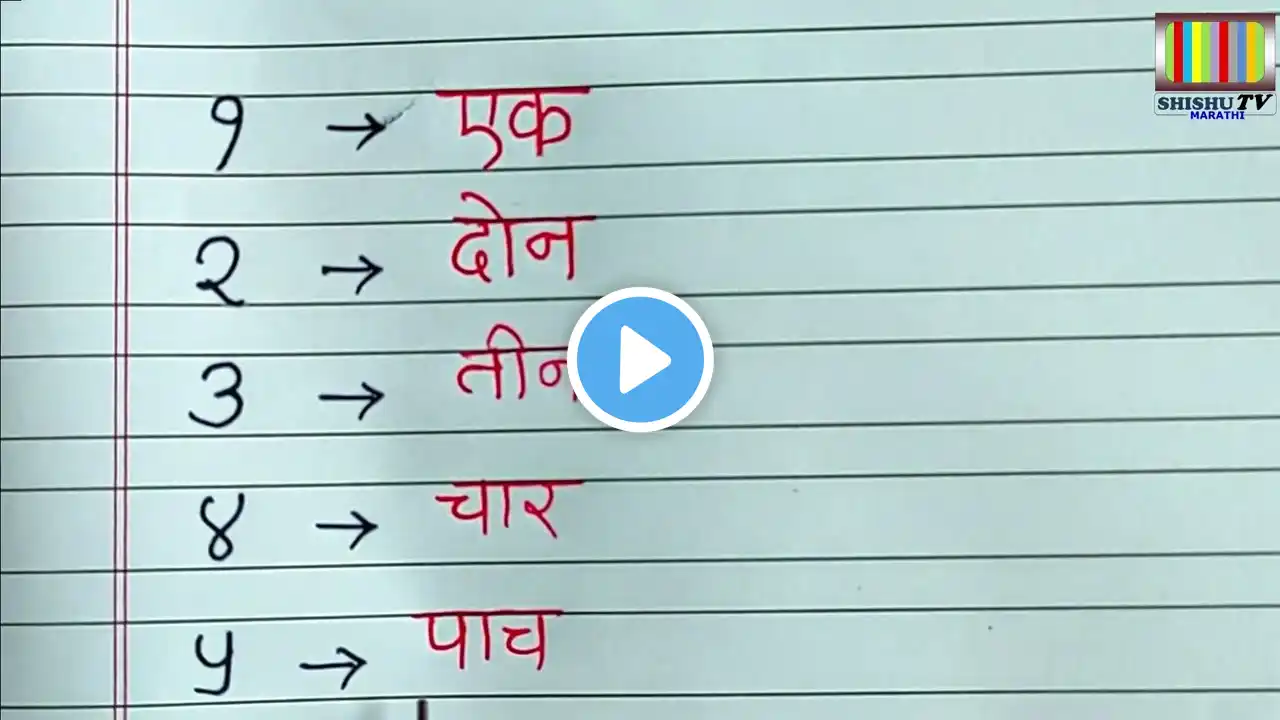 १ → एक
२ → दोन
३ → तीन
४ → चार
५ → पाच
SHISHU TV
MARATHI